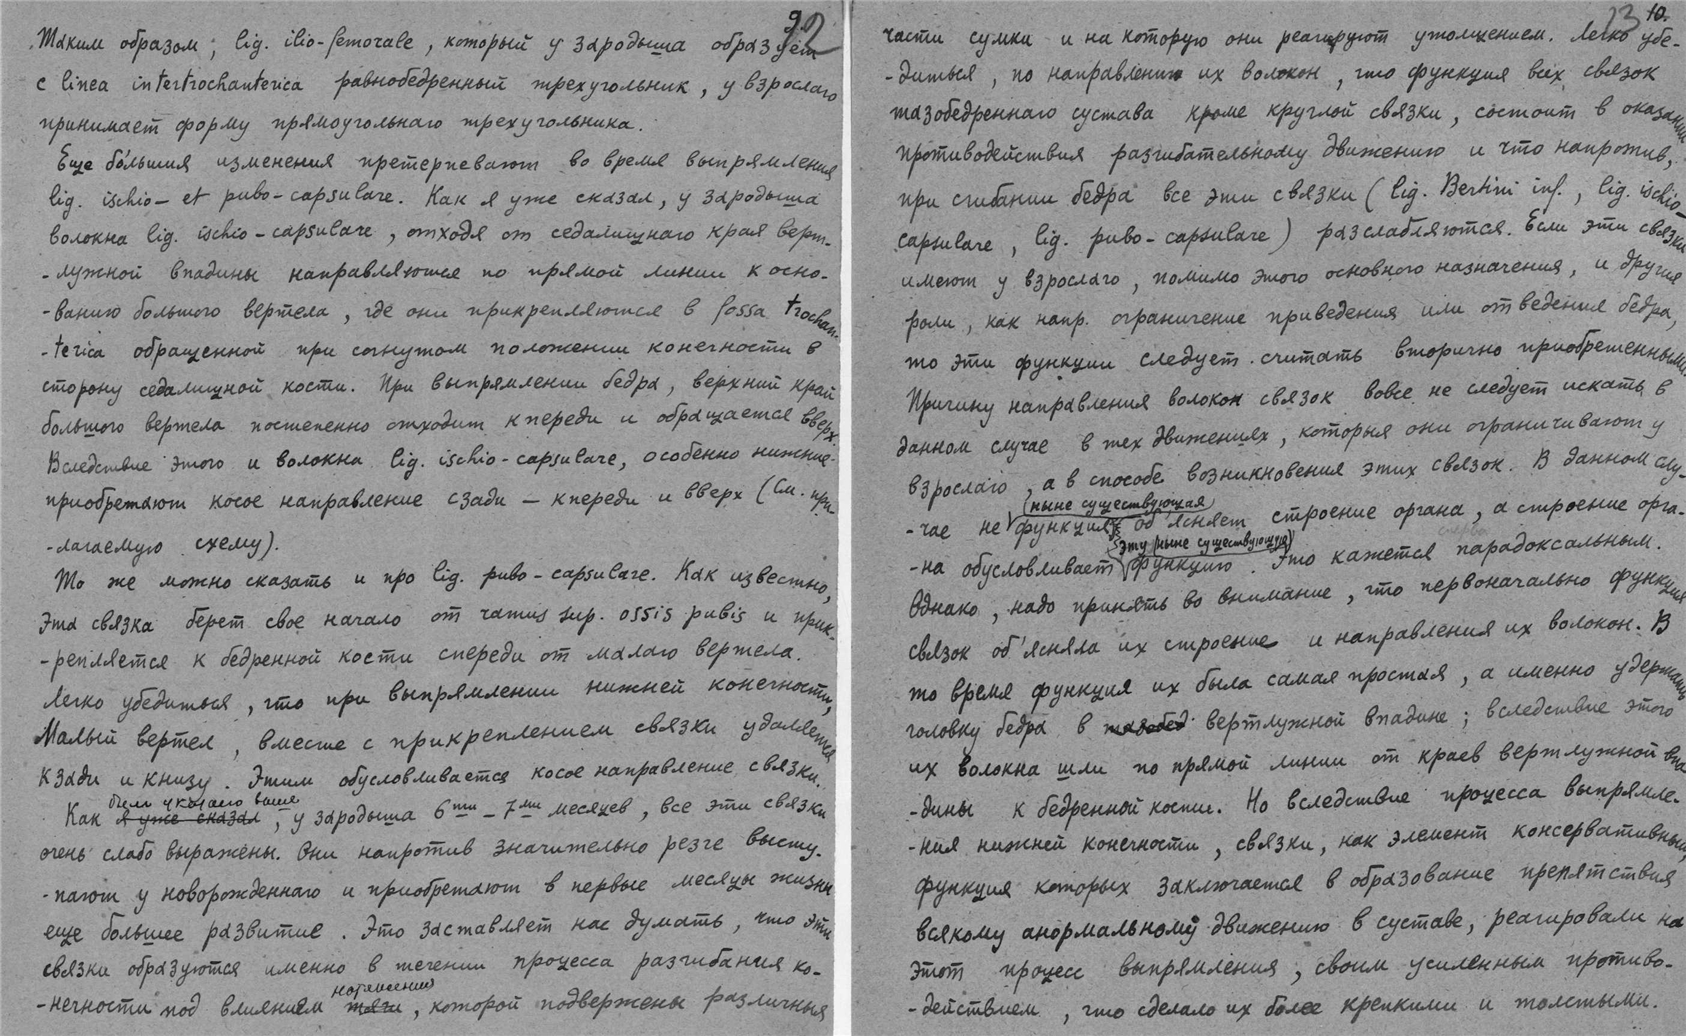 9.
2
Таким образом, lig. ilio-femorale, который у зародыша образует
с linea intertrochanterica равнобедренный трехугольник, у взрослаго
принимает форму прямоугольнаго трехугольника.
Еще бо́льшия изменения претерпевают во время выпрямления
lig. ischio- et pubo-capsulare. Как я уже сказал, у зародыша
волокна lig. ischio-capsulare, отходя от седалищнаго края верт-
-лужной впадины направляются по прямой линии к осно-
-ванию большого вертела, где они прикрепляются в fossa trochan-
-terica обращенной при согнутом положении конечности в
сторону седалищной кости. При выпрямлении бедра, верхний край
большого вертела постепенно отходит кпереди и обращается вверх.
Вследствие этого и волокна lig. ischio-capsulare, особенно нижние-
приобретают косое направление сзади – кпереди и вверх (См. при-
-лагаемую схему).
То же можно сказать и про lig. pubo-capsulare. Как известно,
эта связка берет свое начало от ramus sup. ossis pubis и прик-
-репляется к бедренной кости спереди от малаго вертела.
Легко убедиться, что при выпрямлении нижней конечности,
Малый вертел, вместе с прикреплением связки удаляется
кзади и книзу. Этим обусловливается косое направление связки.
было указано выше
Как я уже сказал, у зародыша 6ти – 7ми месяцев, все эти связки
очень слабо выражены. Они напротив значительно резче высту-
-пают у новорожденнаго и приобретают в первые месяцы жизни
еще большее развитие. Это заставляет нас думать, что эти
связки образуются именно в течении процесса разгибания ко-
натяжения
-нечности под влиянием тяги, которой подвержены различныя
13
10.
части сумки и на которую они реагируют утолщением. Легко убе-
-диться, по направлению их волокон, что функция всех связок
тазобедреннаго сустава кроме круглой связки, состоит в оказании
противодействия разгибательному движению и что напротив,
при сгибании бедра все эти связки (lig. Bertini inf., lig. ischio-
capsulare, lig. pubo-capsulare) разслабляются. Если эти связки
имеют у взрослаго, помимо этого основного назначения, и другие
роли, как напр. ограничение приведения или отведения бедра,
то эти функции следует считать вторично приобретенными.
Причину направления волокон связок вовсе не следует искать в
данном случае в тех движениях, которыя они ограничивают у
взрослаго, а в способе возникновения этих связок. В данном слу-
(ныне существующая)
-чае не функция об'ясняет строение органа, а строение орга-
эту (ныне существующую)
-на обусловливает функцию. Это кажется парадоксальным.
Однако, надо принять во внимание, что первоначально функция
связок об'ясняла их строение и направления их волокон. В
то время функция их была самая простая, а именно удержать
головку бедра в тазобед вертлужной впадине; вследствие этого
их волокна шли по прямой линии от краев вертлужной впа-
-дины к бедренной кости. Но вследствие процесса выпрямле-
-ния нижней конечности, связки, как элемент консервативный,
функция которых заключается в образование препятствия
всякому анормальному движению в суставе, реагировали на
этот процесс выпрямления, своим усиленным противо-
-действием, что сделало их более крепкими и толстыми.